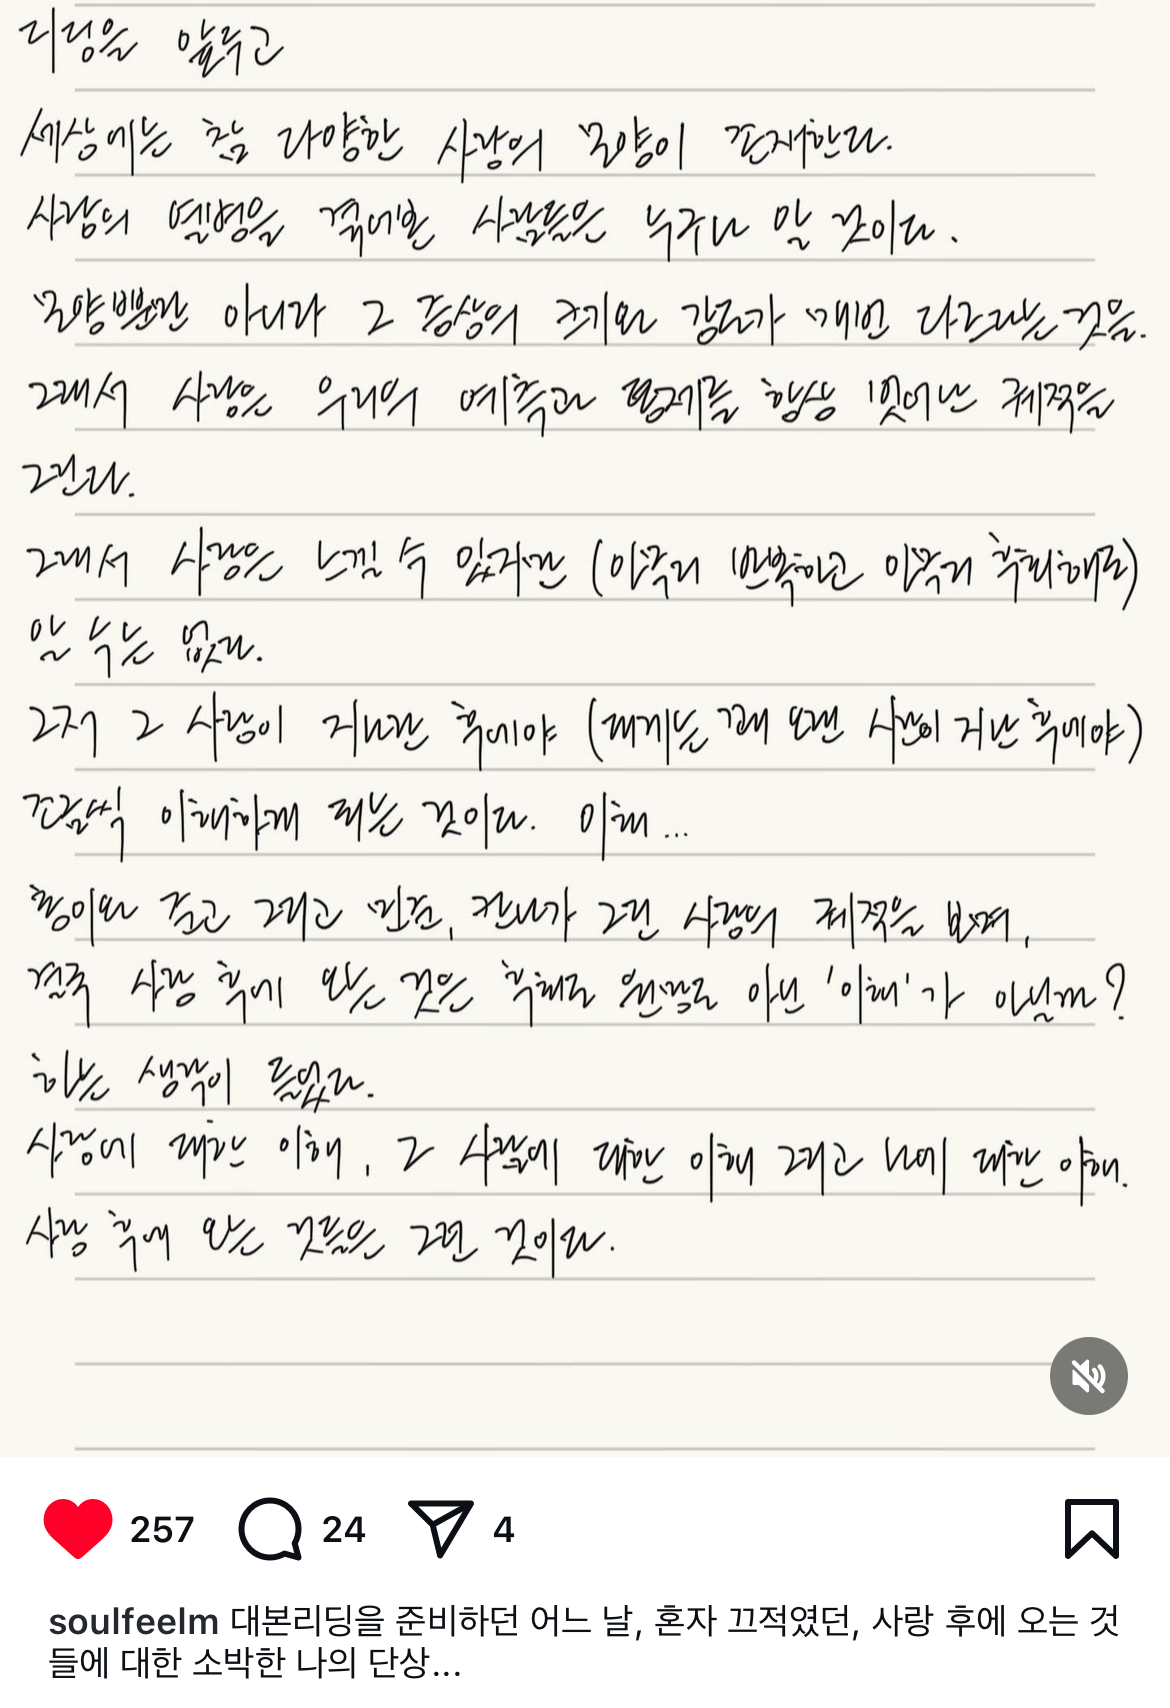 리딩을 앞두고
세상에는 참 다양한 사랑의 모양이 존재한다.
사랑의 열병을 겪어본 사람들은 누구나 알 것이다.
모양뿐만 아니라 그 증상의 크기와 강도가 매번 다르다는 것을.
그래서 사랑은 우리의 예측과 형체를 항상 벗어난 궤적을
그린다.
그래서 사랑은 느낄 수 있지만 (아무리 반복하고 아무리 후회해도)
알 수는 없다.
그저 그 사랑이 지나간 후에야 (때로는 꽤 오랜 시간이 지난 후에야)
조금씩 이해하게 되는 것이다. 이해...
그리고 민준, 그린 사랑의 궤적을 보며,
결국 사랑 후에 오는 것은 후회도 원망도 아닌 '이해'가 아닐까?
하는 생각이 들었다.
사랑에 대한 이해, 그 사람에 대한 이해 그리고 나에 대한 이해.
사랑 후에 오는 것들은 그런 것이다.
257 24 4
soulfeelm 대본리딩을 준비하던 어느 날, 혼자 끄적였던, 사랑 후에 오는 것
들에 대한 소박한 나의 단상...